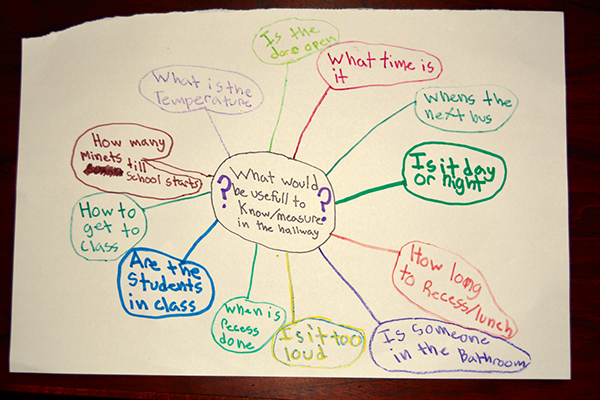 Is the
door open
What time is
it
What is the
Temperature
Whens the
next bus
How many
Minets till
School starts
Is it day
or night
What would
be usefull to
Know/measure
in the hallway
? ?
How to
get to
class
Are the
students
in class
How long
to Recess/lunch
When is
recess
done
Is it too
loud
Is someone
in the Bathroom